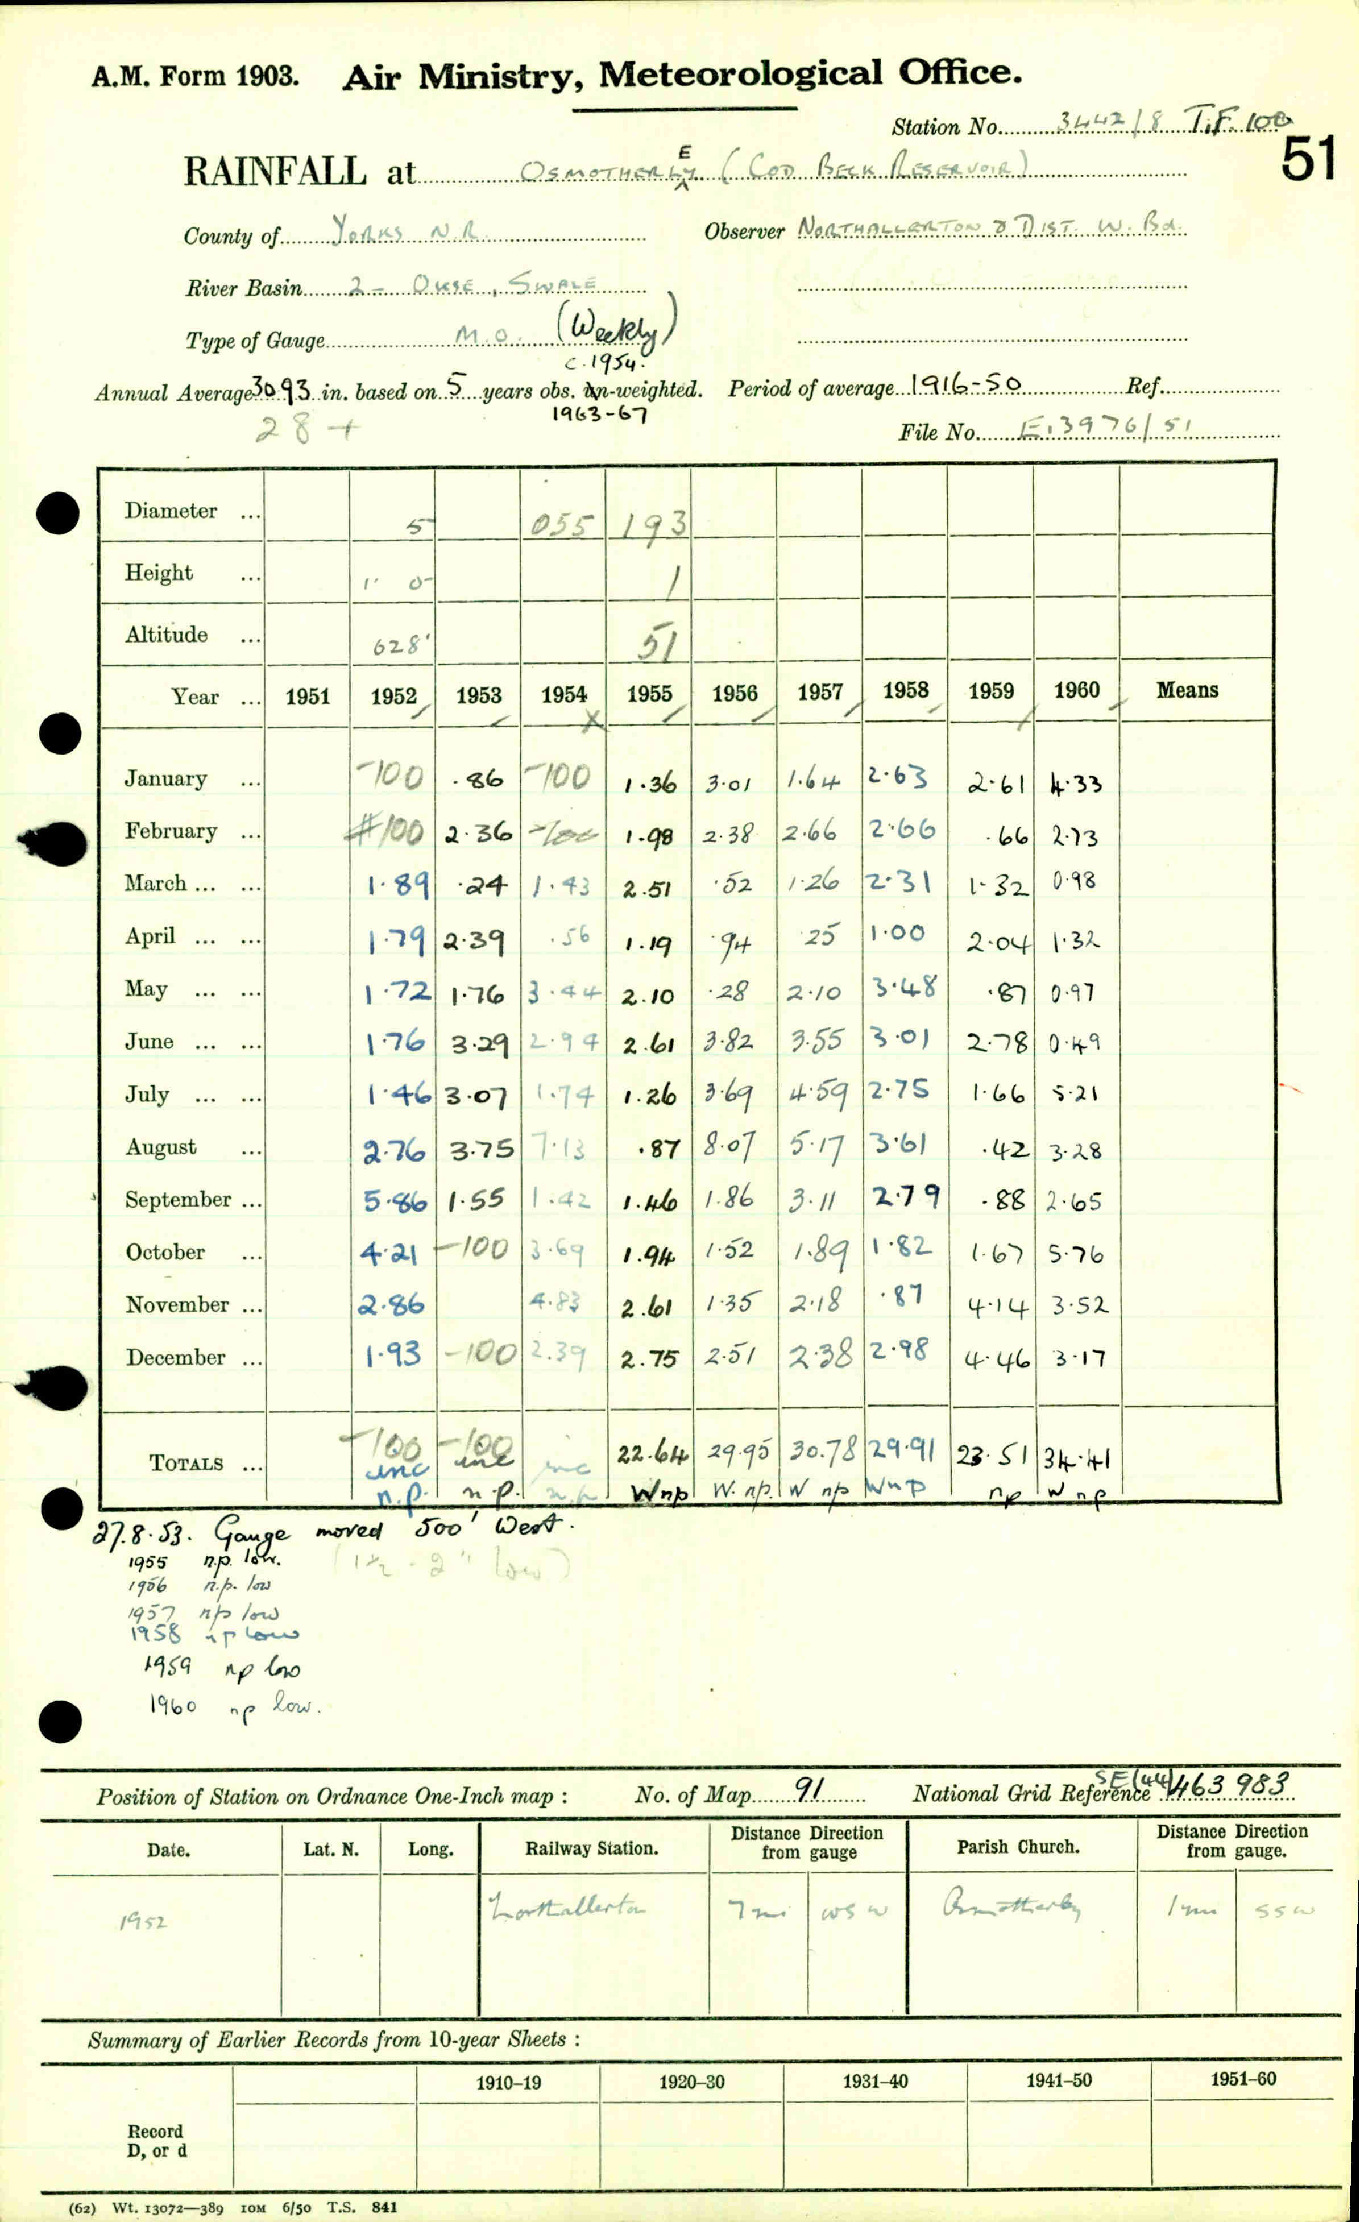 A.M. Form 1903. Air Ministry, Meteorological Office.
Station No. 3442/8 T.F. 100
51
RAINFALL at OSMOTHERLEY (COD BECK RESERVOIR)
County of YORKS N.R. Observer NORTHALLERTON & DIST. W. Bd.
River Basin 2 - OUSE, SWALE
Type of Gauge M.O. (Weekly)
c. 1954.
Annual Average 30.93 in. based on 5 years obs. un-weighted. Period of average 1916-50 Ref.
1963-67
28+
File No. E13976/51
Diameter ... 5 055 193
Height ... 1' 0" 1
Altitude ... 628' 51
Year ... 1951 1952 1953 1954 1955 1956 1957 1958 1959 1960 Means
January ... -100 .86 -100 1.36 3.01 1.64 2.63 2.61 4.33
February ... -100 2.36 -100 1.98 2.38 2.66 2.66 .66 2.73
March ... ... 1.89 .24 1.43 2.51 .52 1.26 2.31 1.32 0.98
April ... ... 1.79 2.39 .56 1.19 .94 .25 1.00 2.04 1.32
May ... ... 1.72 1.76 3.44 2.10 .28 2.10 3.48 .87 0.97
June ... ... 1.76 3.29 2.94 2.61 3.82 3.55 3.01 2.78 0.49
July ... ... 1.46 3.07 1.74 1.26 3.69 4.59 2.75 1.66 5.21
August ... 2.76 3.75 7.13 .87 8.07 5.17 3.61 .42 3.28
September ... 5.86 1.55 1.42 1.46 1.86 3.11 2.79 .88 2.65
October ... 4.21 -100 3.69 1.94 1.52 1.89 1.82 1.67 5.76
November ... 2.86 4.83 2.61 1.35 2.18 .87 4.14 3.52
December ... 1.93 -100 2.39 2.75 2.51 2.38 2.98 4.46 3.17
TOTALS ... -100 -100 22.64 29.95 30.78 29.91 23.51 34.41
inc inc inc
n.p. n.p. n.p. Wnp W.np. W np Wnp np W np
27.8.53. Gauge moved 500' West.
1955 n.p. low. (1½ - 2" low)
1956 n.p. low
1957 np low
1958 np low
1959 np low
1960 np low.
Position of Station on Ordnance One-Inch map : No. of Map 91 National Grid Reference SE(44) 463 983
Date. Lat. N. Long. Railway Station. Distance Direction from gauge Parish Church. Distance Direction from gauge.
1952 Northallerton 7 mi WSW Osmotherley 1 mi SSW
Summary of Earlier Records from 10-year Sheets :
1910-19 1920-30 1931-40 1941-50 1951-60
Record
D, or d
(62) Wt. 13072—389 10M 6/50 T.S. 841